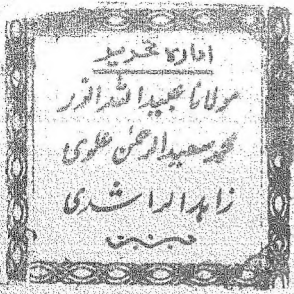 ادارہ تحریر
مولانا عبیداللہ انور
محمد سعیدالرحمٰن علوی
زاہدالراشدی